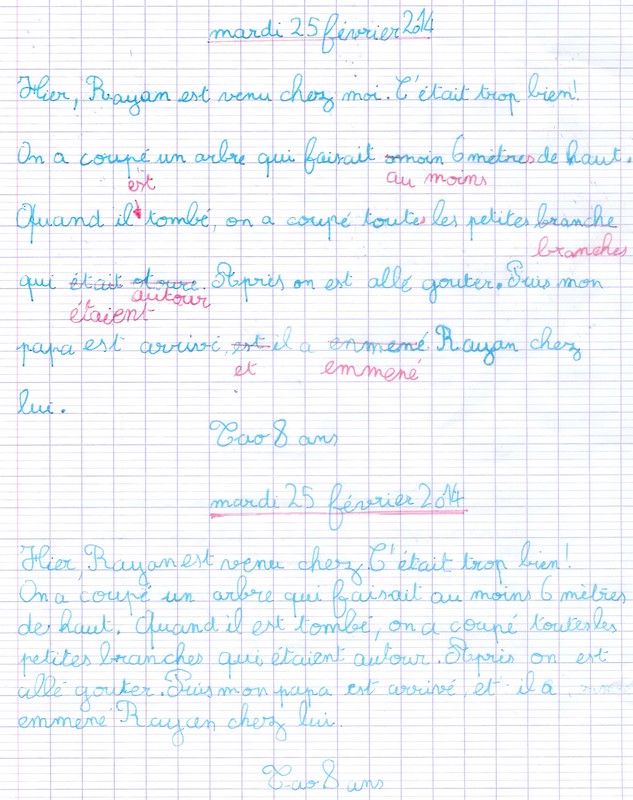 mardi 25 février 2014
Hier, Rayan est venu chez moi. C'était trop bien!
On a coupé un arbre qui faisait omoin 6 mètres de haut.
est au moins
Quand il tombé, on a coupé toutes les petites branche
branches
qui était otoure. Après on est allé gouter. Puis mon
étaient autour
papa est arrivé, est il a enmené Rayan chez
et emmené
lui.
Tao 8 ans
mardi 25 février 2014
Hier, Rayan est venu chez. C'était trop bien!
On a coupé un arbre qui faisait au moins 6 mètres
de haut. Quand il est tombé, on a coupé toutes les
petites branches qui étaient autour. Après on est
allé gouter. Puis mon papa est arrivé, et il a
emmené Rayan chez lui.
Tao 8 ans